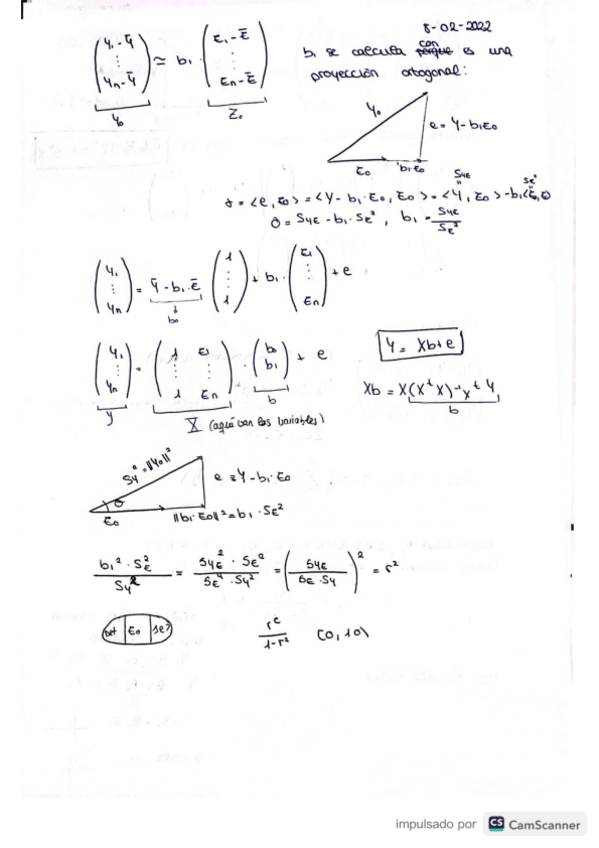 8-02-2022
(y₁-ȳ ⋮ yₙ-ȳ) ≃ b₁ · (ε₁-ε̄ ⋮ εₙ-ε̄)
y₀ Z₀
b₁ se calcula con porque es una
proyección ortogonal:
y₀
e = y-b₁ε₀
ε₀ b₁ε₀
Syε Sε²
0 = <e, ε₀> = <y-b₁·ε₀, ε₀> = <y, ε₀> - b₁<ε₀, ε₀>
0 = Syε - b₁·Sε², b₁ = Syε/Sε²
(y₁ ⋮ yₙ) = ȳ-b₁·ε̄ (1 ⋮ 1) + b₁·(ε₁ ⋮ εₙ) + e
b₀
(y₁ ⋮ yₙ) = (1 ε₁ ⋮ ⋮ 1 εₙ) · (b₀ b₁) + e
y = Xb+e
y X (aquí van las variables) b
Xb = X(XᵗX)⁻¹Xᵗy
b
Sy² = ||y₀||²
e = y-b₁·ε₀
θ
ε₀ ||b₁·ε₀||² = b₁·Sε²
b₁²·Sε²/Sy² = Syε²·Sε²/Sε⁴·Sy² = (Syε/Sε·Sy)² = r²
ε₀
r²/1-r² (0, 10)
impulsado por CS CamScanner